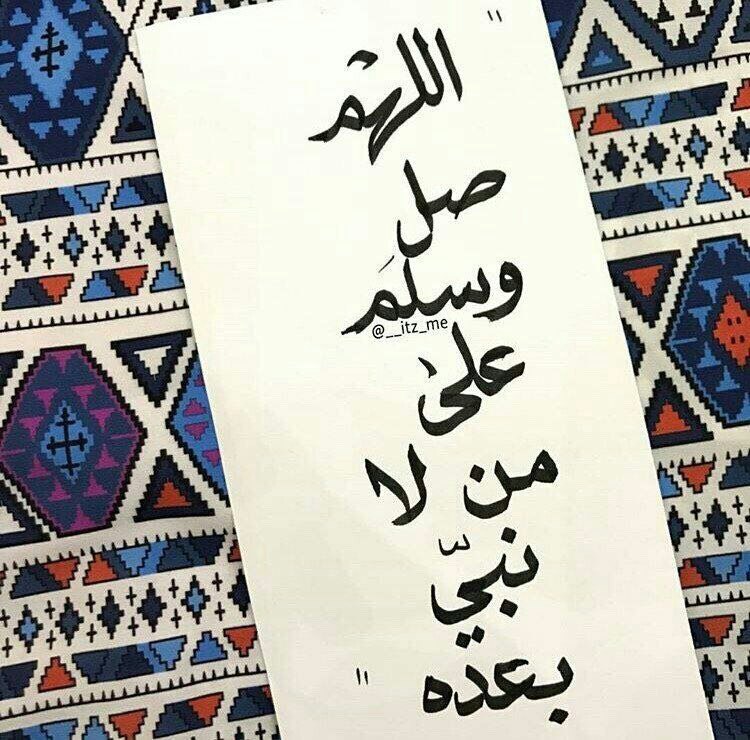 " اللهم
صل
وسلم
@__itz_me
على
من لا
نبيّ
بعده "